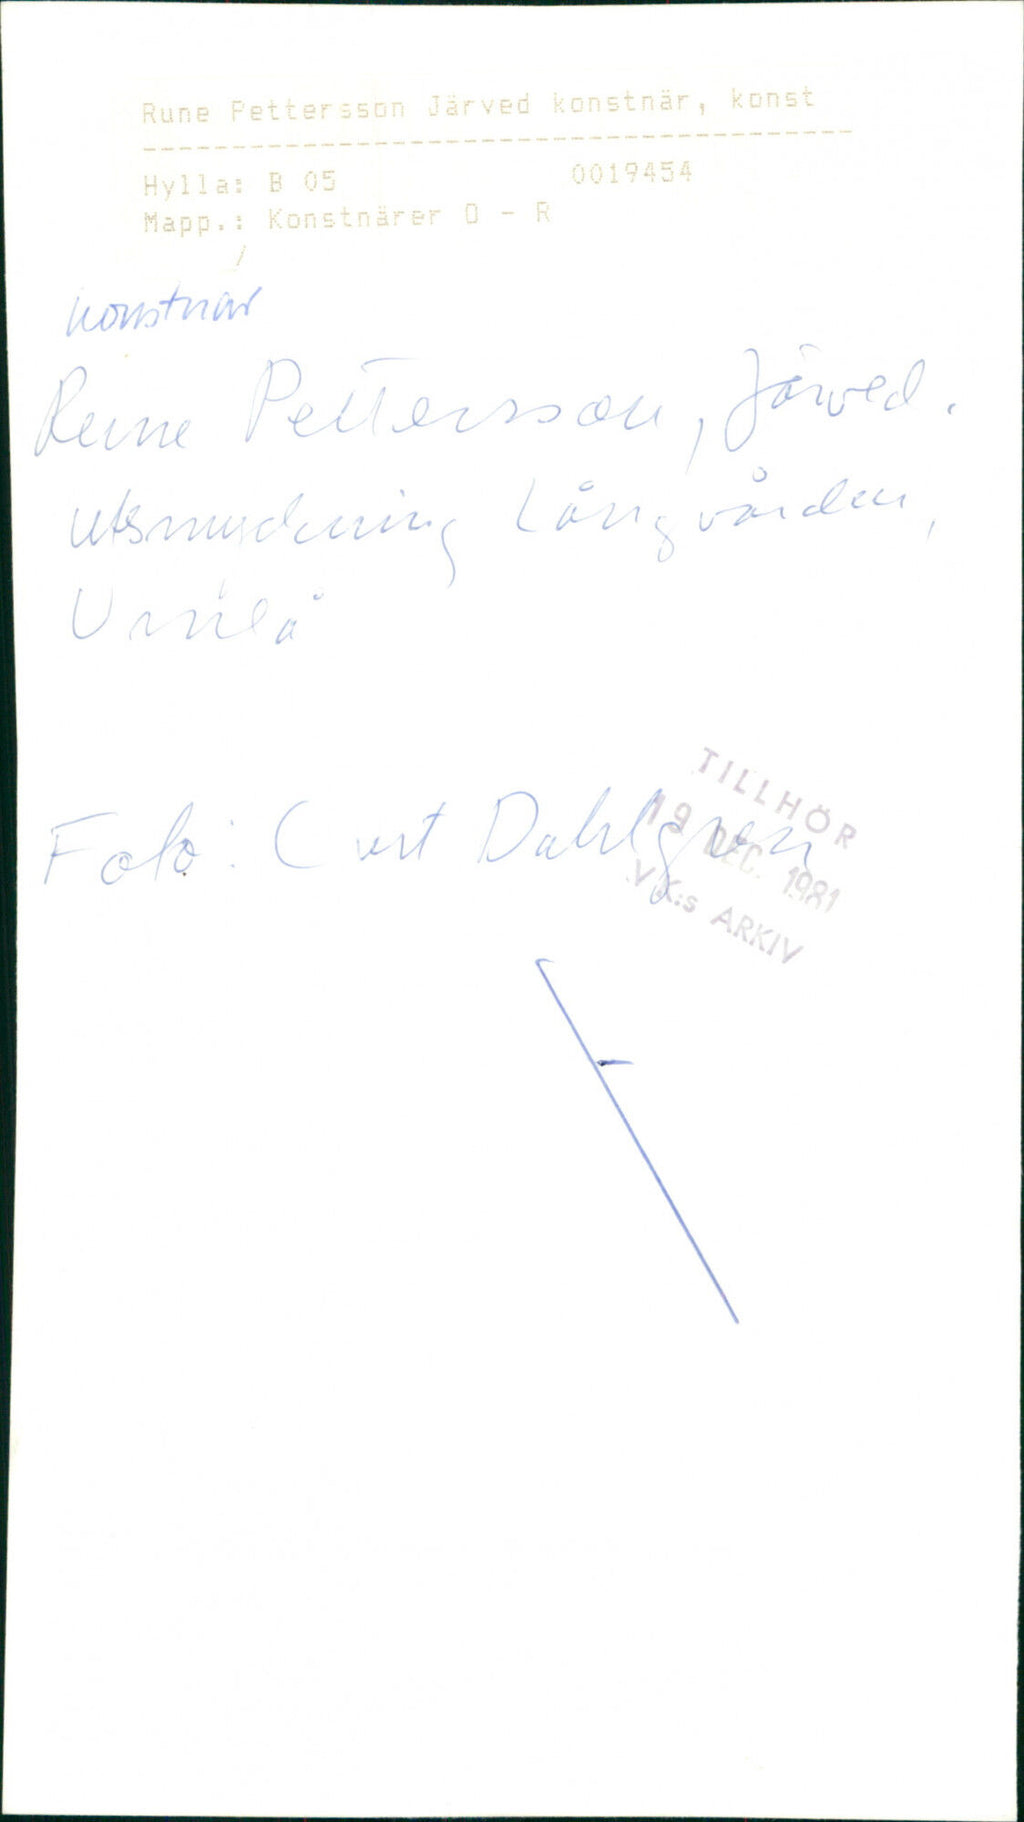 Rune Pettersson Järved konstnär, konst
----------------------------------------
Hylla: B 05 0019454
Mapp.: Konstnärer O - R
konstnär
Rune Pettersson, Järved.
utsmyckning Långvården,
Umeå
Foto: Curt Dahlgren
TILLHÖR
19 DEC. 1981
V.K:s ARKIV